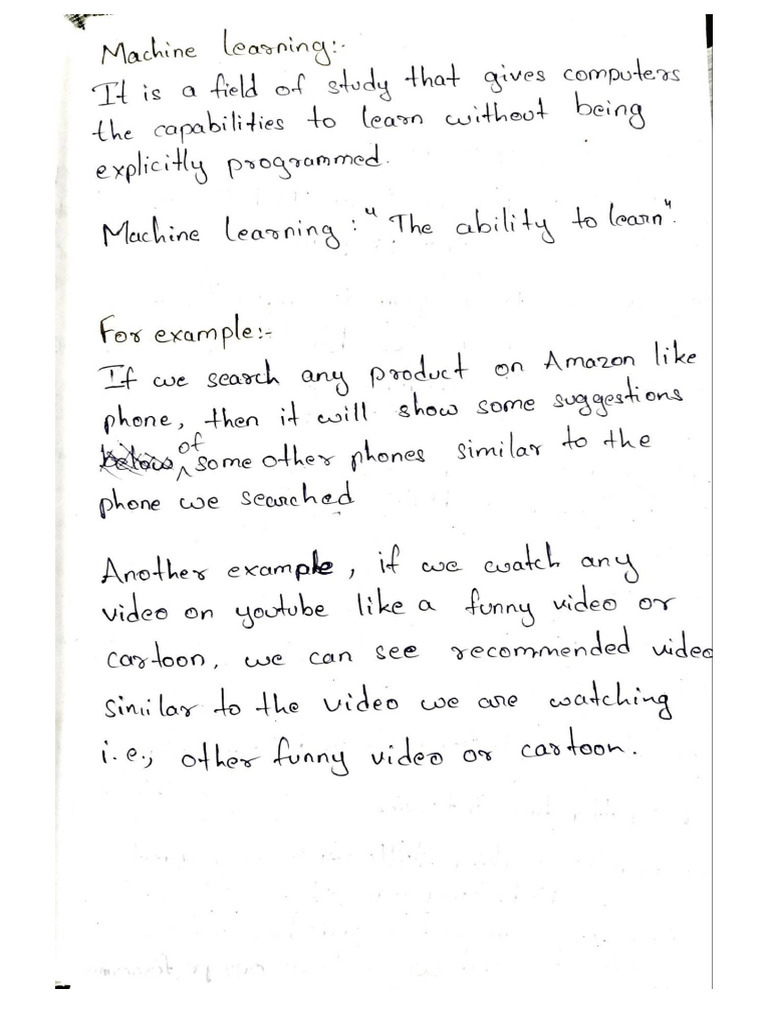 Machine learning:-
It is a field of study that gives computers
the capabilities to learn without being
explicitly programmed.
Machine learning : "The ability to learn".
For example:-
If we search any product on Amazon like
phone, then it will show some suggestions
of some other phones similar to the
phone we searched
Another example, if we watch any
video on youtube like a funny video or
cartoon, we can see recommended video
similar to the video we are watching
i.e., other funny video or cartoon.